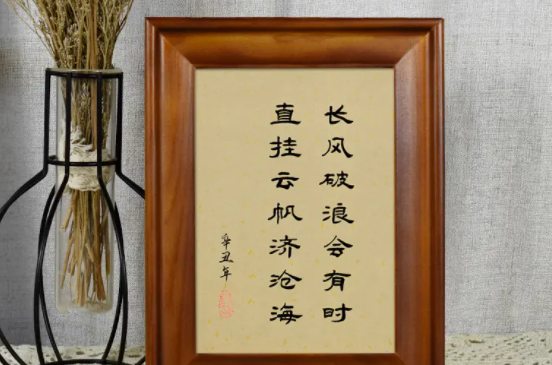 长风破浪会有时
直挂云帆济沧海
辛丑年